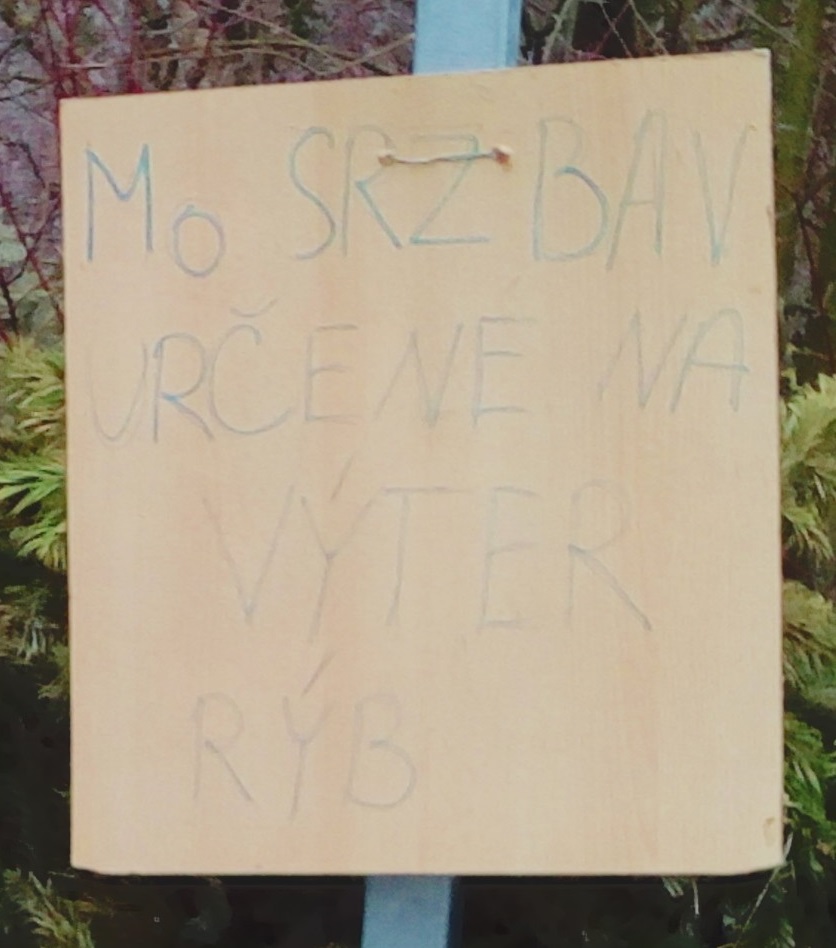 Mo SRZ BAV
URČENE NA
VÝTER
RÝB